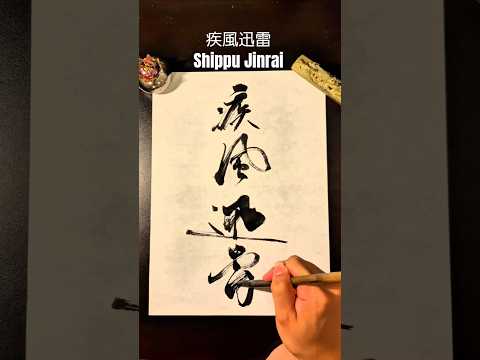 疾風迅雷
Shippu Jinrai
疾
風
迅
雷